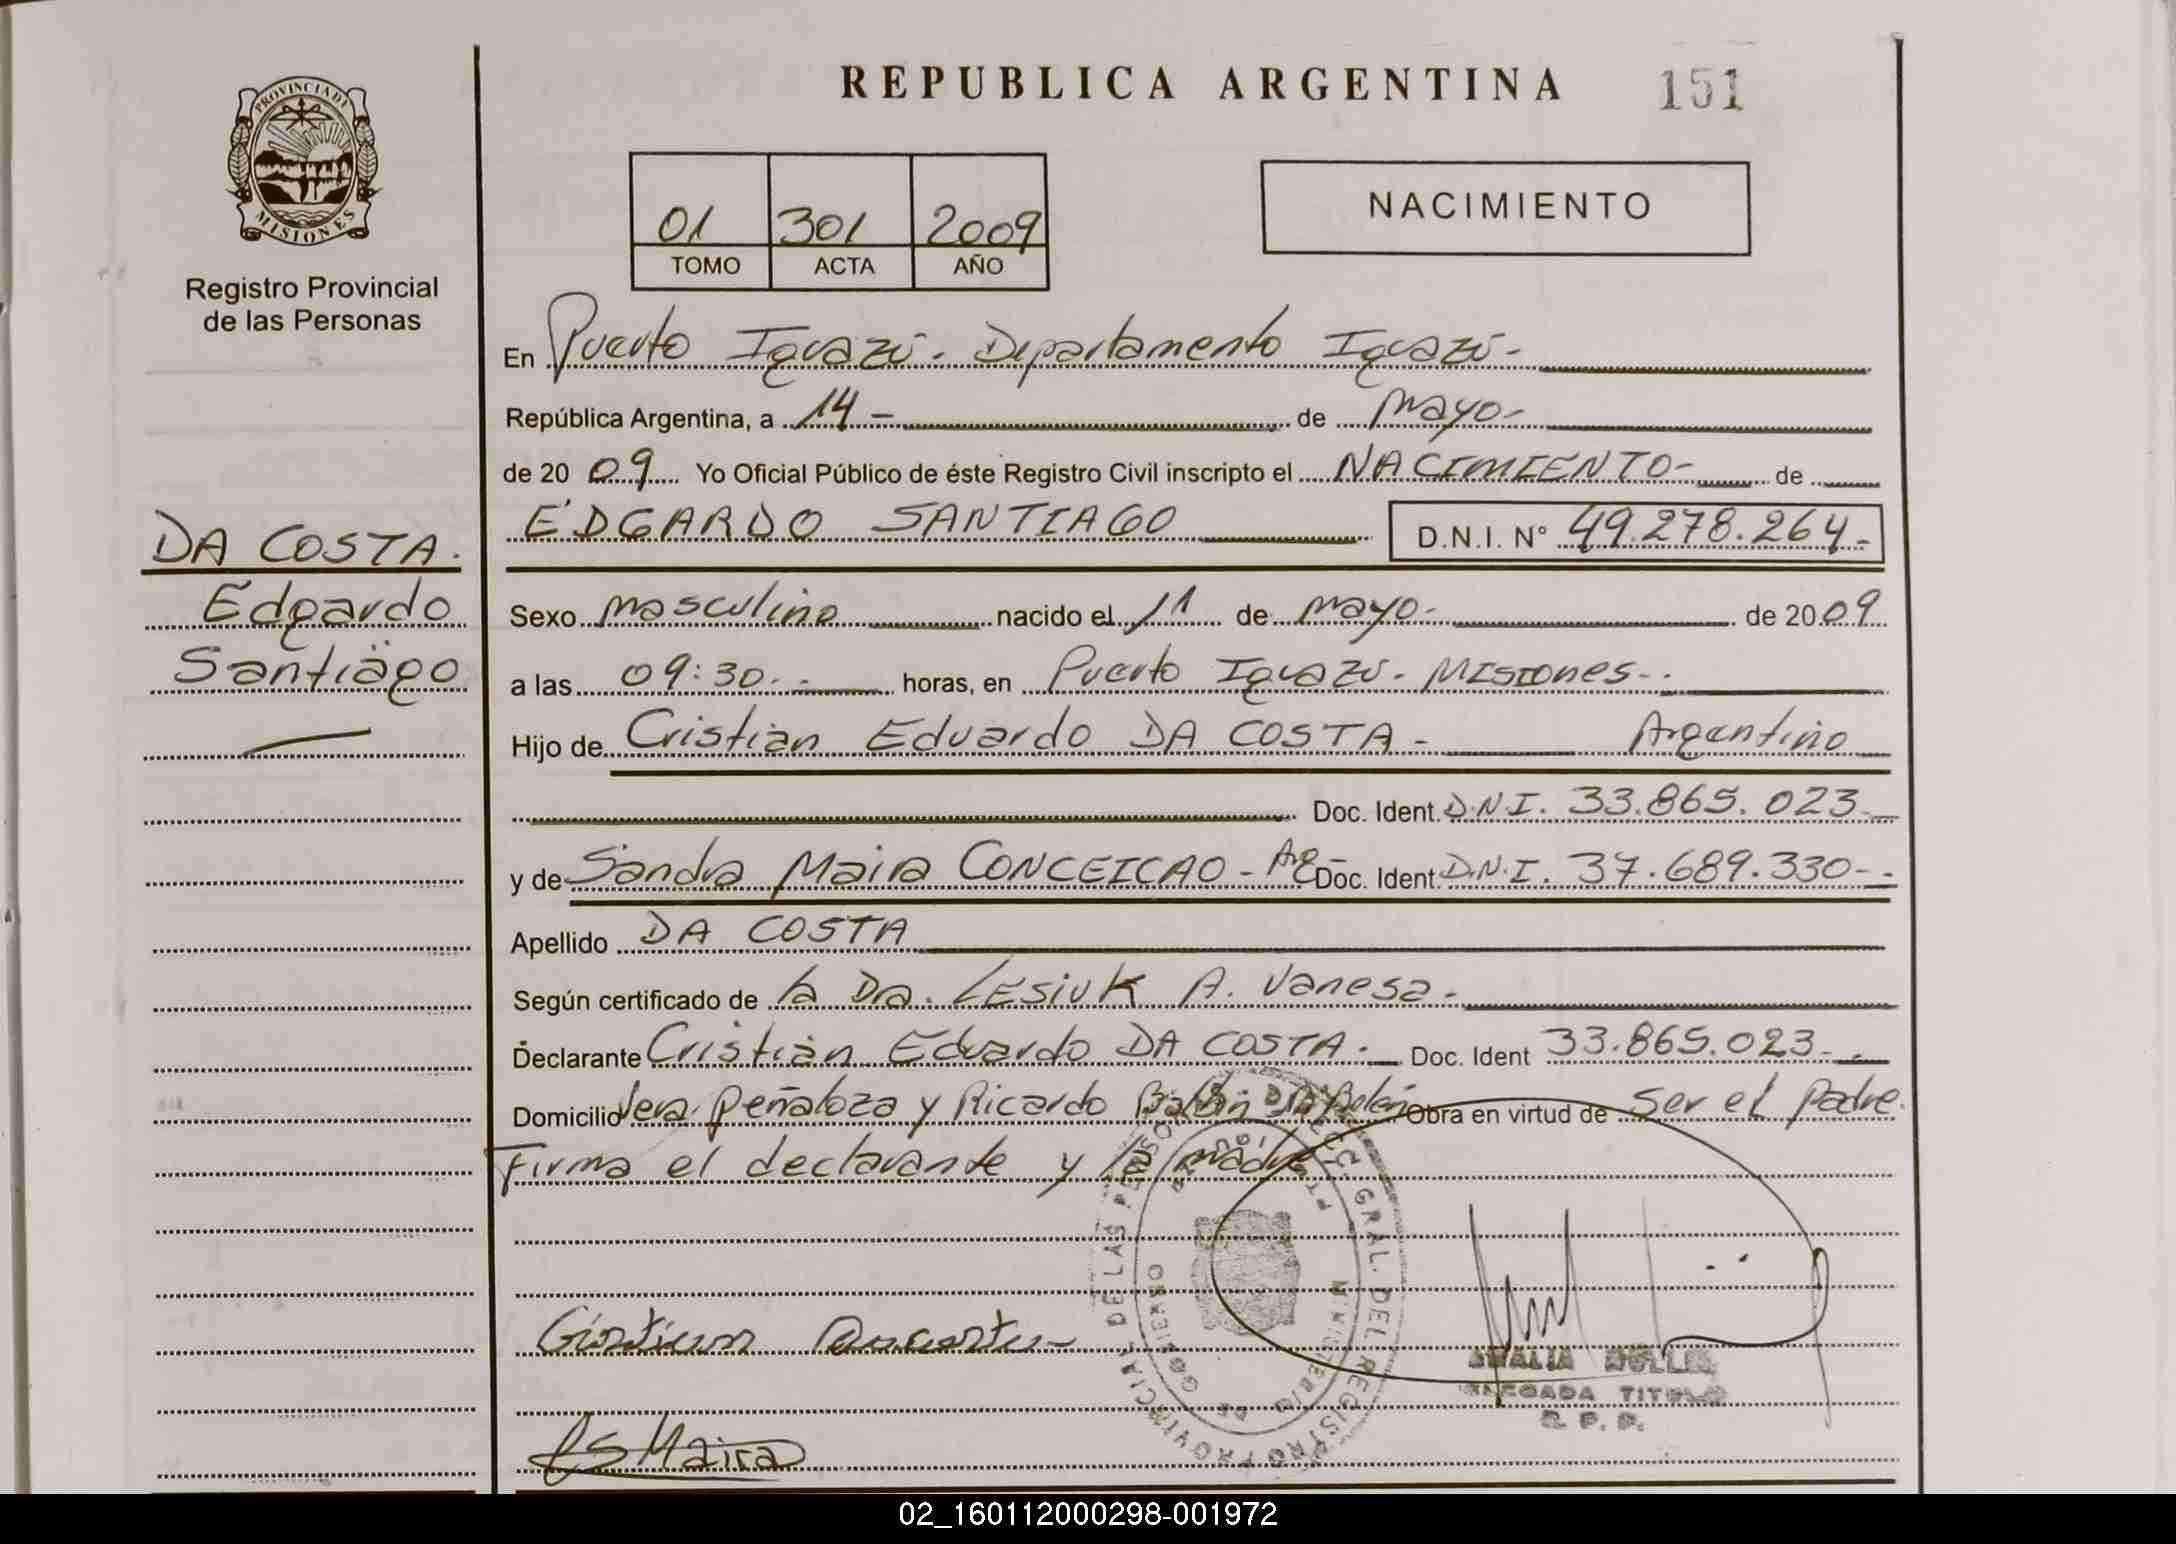 REPUBLICA ARGENTINA 151
PROVINCIA DE
MISIONES
Registro Provincial
de las Personas
01 301 2009
TOMO ACTA AÑO
NACIMIENTO
En Puerto Iguazú - Departamento Iguazú -
República Argentina, a 14 - de mayo -
de 20 09 Yo Oficial Público de éste Registro Civil inscripto el NACIMIENTO - de
EDGARDO SANTIAGO D.N.I. N° 49.278.264 -
DA COSTA.
Edgardo
Santiago
Sexo masculino nacido el 11 de mayo - de 20 09
a las 09:30 - horas, en Puerto Iguazú - Misiones -
Hijo de Cristian Eduardo DA COSTA - Argentino
Doc. Ident. D.N.I. 33.865.023 -
y de Sandra Maira CONCEICAO - Arg Doc. Ident. D.N.I. 37.689.330 -
Apellido DA COSTA
Según certificado de la Dra. LESIUK A. Vanesa -
Declarante Cristian Eduardo DA COSTA - Doc. Ident 33.865.023 -
Domicilio Vera Peñaloza y Ricardo Balbín Obra en virtud de ser el padre.
Firma el declarante y la madre
DIRECC. GRAL. DEL REGISTRO PROVINCIAL DE LAS PERSONAS
MINISTERIO DE GOBIERNO
Maira
TITULAR
R. P. P.
02_160112000298-001972